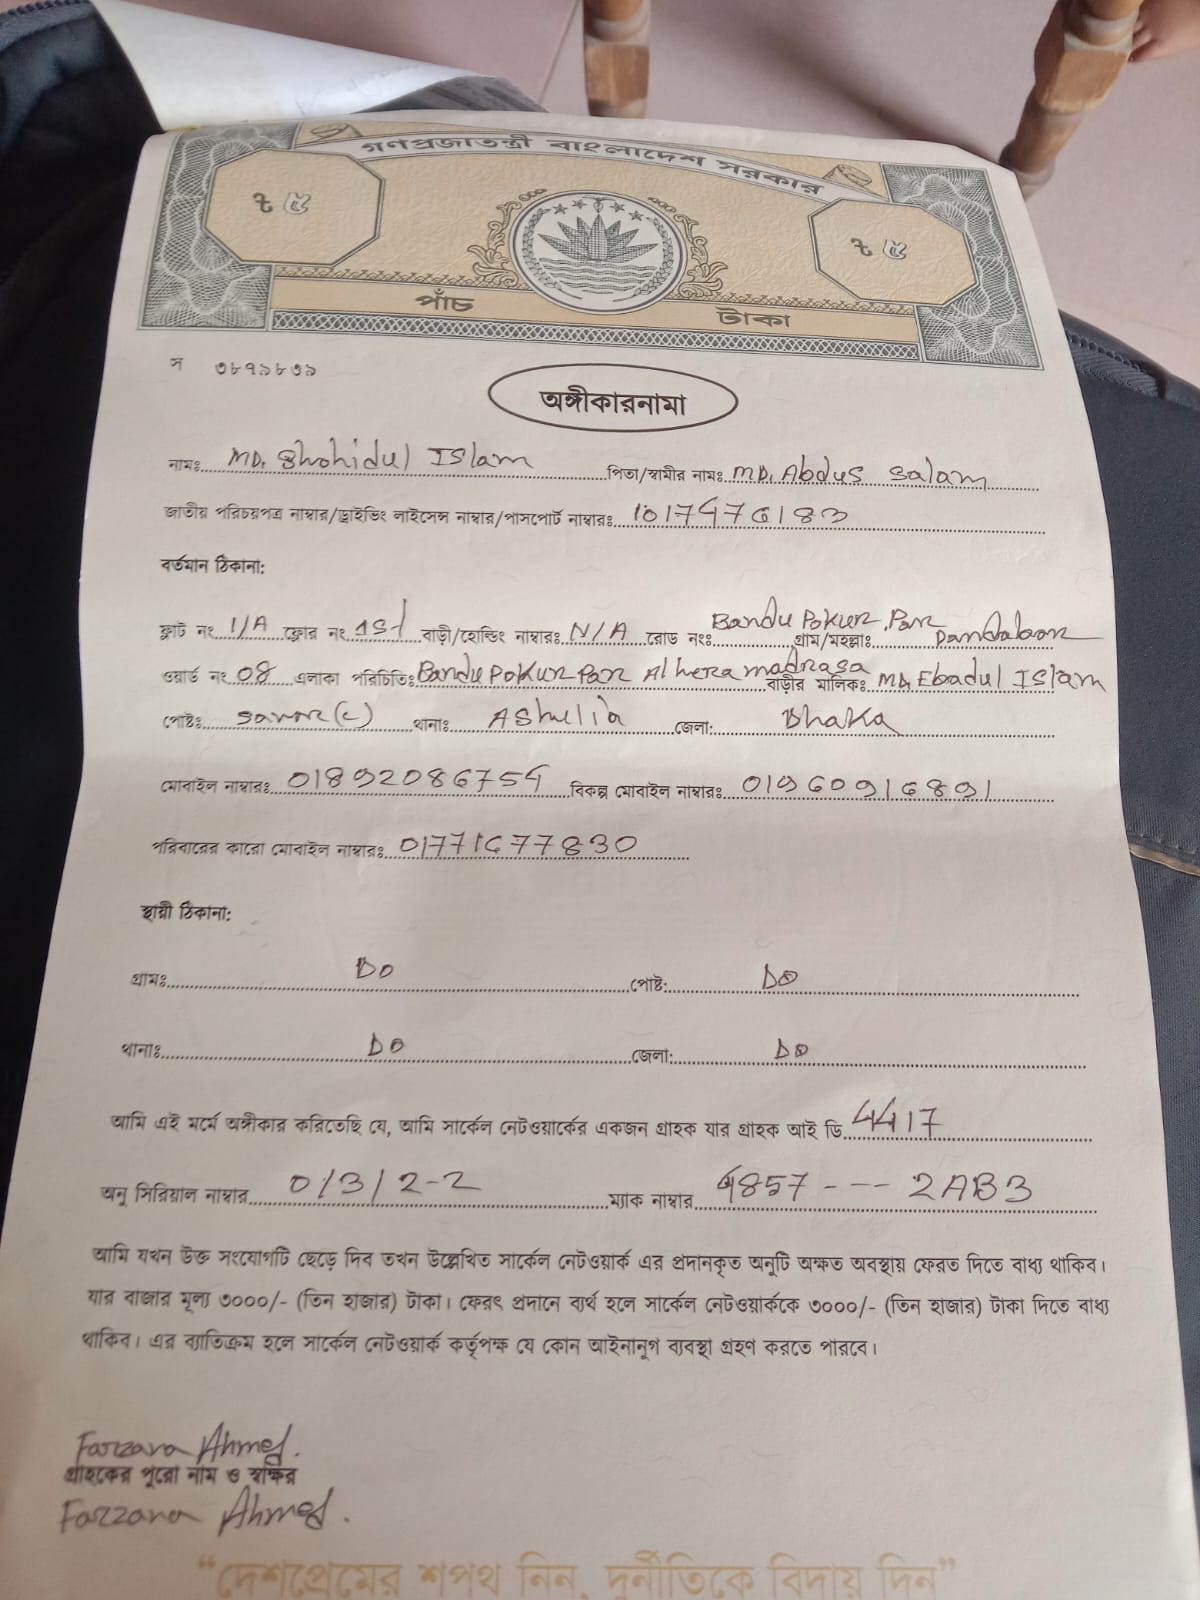 গণপ্রজাতন্ত্রী বাংলাদেশ সরকার
৳ ৫
৳ ৫
পাঁচ টাকা
স ৩৮৭৯৮৩৯
অঙ্গীকারনামা
নামঃ MD. Shohidul Islam পিতা/স্বামীর নামঃ MD. Abdus Salam
জাতীয় পরিচয়পত্র নাম্বার/ড্রাইভিং লাইসেন্স নাম্বার/পাসপোর্ট নাম্বারঃ 1017476183
বর্তমান ঠিকানা:
ফ্লাট নং 1/A ফ্লোর নং 1st বাড়ী/হোল্ডিং নাম্বারঃ N/A রোড নংঃ Bandu Pokur Par গ্রাম/মহল্লাঃ
ওয়ার্ড নং 08 এলাকা পরিচিতিঃ Bandu Pokur Par Al hera madrasa বাড়ীর মালিকঃ MD. Ebadul Islam
পোষ্টঃ savar (c) থানাঃ AShulia জেলা: Dhaka
মোবাইল নাম্বারঃ 01892086754 বিকল্প মোবাইল নাম্বারঃ 01960916891
পরিবারের কারো মোবাইল নাম্বারঃ 01771677830
স্থায়ী ঠিকানা:
গ্রামঃ DO পোষ্ট: DO
থানাঃ DO জেলা: DO
আমি এই মর্মে অঙ্গীকার করিতেছি যে, আমি সার্কেল নেটওয়ার্কের একজন গ্রাহক যার গ্রাহক আই ডি 4417
অনু সিরিয়াল নাম্বার 0/3/2-2 ম্যাক নাম্বার 4857 --- 2AB3
আমি যখন উক্ত সংযোগটি ছেড়ে দিব তখন উল্লেখিত সার্কেল নেটওয়ার্ক এর প্রদানকৃত অনুটি অক্ষত অবস্থায় ফেরত দিতে বাধ্য থাকিব।
যার বাজার মূল্য ৩০০০/- (তিন হাজার) টাকা। ফেরৎ প্রদানে ব্যর্থ হলে সার্কেল নেটওয়ার্ককে ৩০০০/- (তিন হাজার) টাকা দিতে বাধ্য
থাকিব। এর ব্যাতিক্রম হলে সার্কেল নেটওয়ার্ক কর্তৃপক্ষ যে কোন আইনানুগ ব্যবস্থা গ্রহণ করতে পারবে।
Farzana Ahmed.
গ্রাহকের পুরো নাম ও স্বক্ষির
Farzana Ahmed.
“দেশপ্রেমের শপথ নিন, দুর্নীতিকে বিদায় দিন”